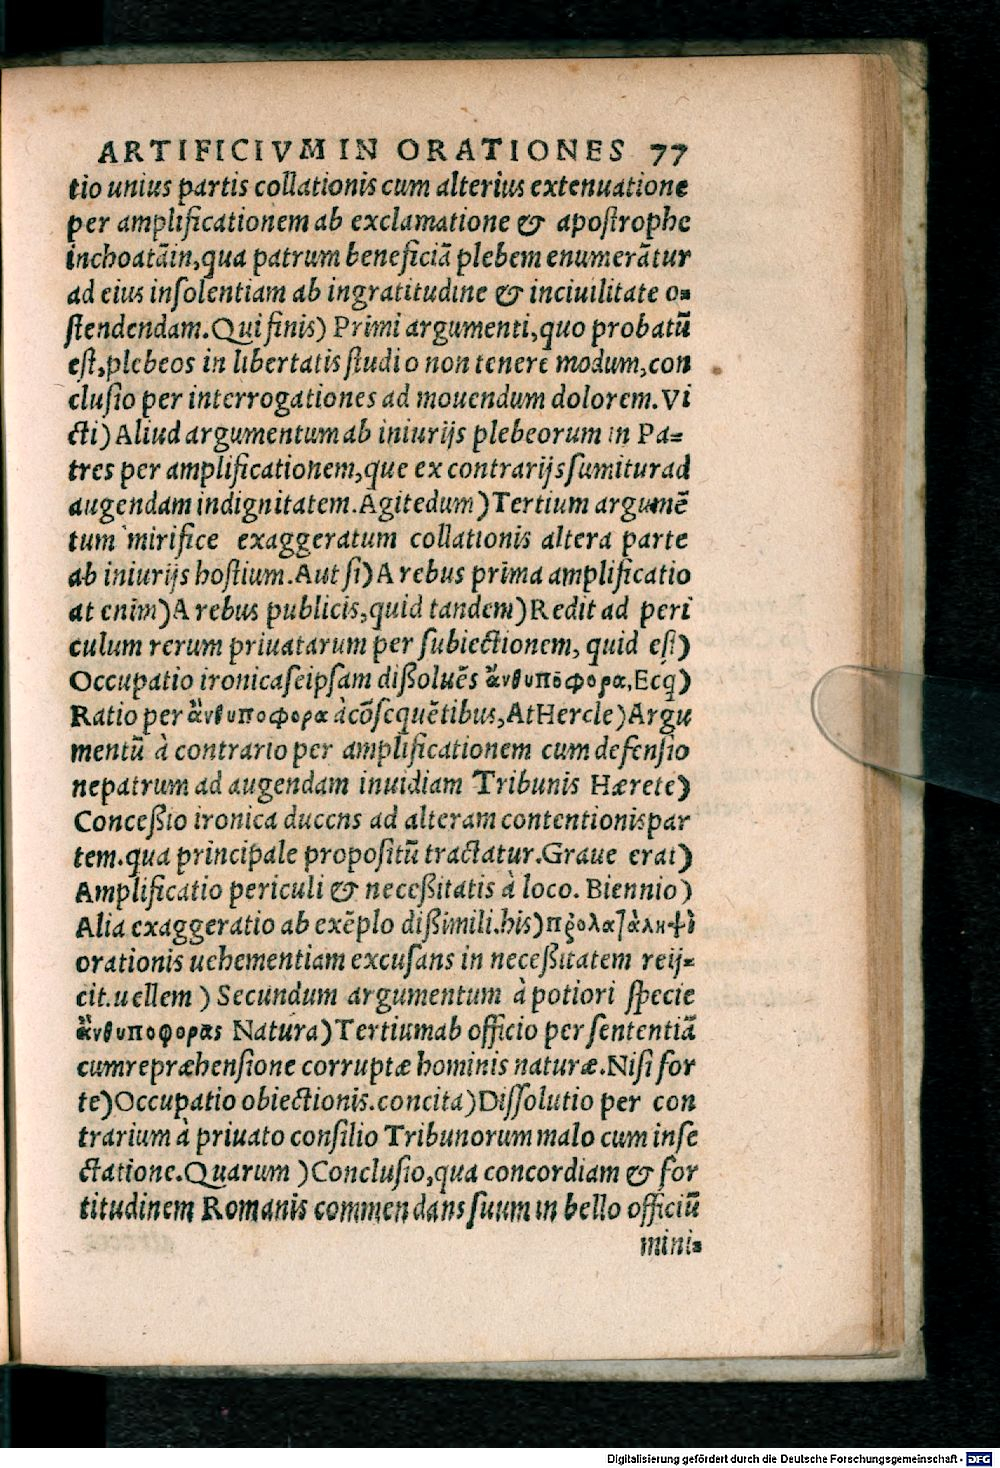 ARTIFICIVM IN ORATIONES 77
tio unius partis collationis cum alterius extenuatione
per amplificationem ab exclamatione & apoſtrophe
inchoatãin,qua patrum beneficiã plebem enumerãtur
ad eius inſolentiam ab ingratitudine & inciuilitate o-
ſtendendam.Qui finis) Primi argumenti,quo probatũ
eſt,plebeos in libertatis ſtudio non tenere modum,con
cluſio per interrogationes ad mouendum dolorem.Vi
cti) Aliud argumentum ab iniurijs plebeorum in Pa-
tres per amplificationem,que ex contrarijs ſumitur ad
augendam indignitatem.Agitedum) Tertium argumẽ
tum mirifice exaggeratum collationis altera parte
ab iniurijs hoſtium.Aut ſi) A rebus prima amplificatio
at enim) A rebus publicis,quid tandem) Redit ad peri
culum rerum priuatarum per ſubiectionem, quid eſt)
Occupatio ironica ſeipſam dißoluẽs ἄνθυπόφορα,Ecq)
Ratio per ἄνθυποφορα à cõſequẽtibus,At Hercle) Argu
mentũ à contrario per amplificationem cum defenſio
nepatrum ad augendam inuidiam Tribunis Hærete)
Conceßio ironica ducens ad alteram contentionis par
tem.qua principale propoſitũ tractatur.Graue erat)
Amplificatio periculi & neceßitatis à loco. Biennio)
Alia exaggeratio ab exẽplo dißimili.his)
orationis uehementiam excuſans in neceßitatem reij-
cit.uellem) Secundum argumentum à potiori ſpecie
ἄνθυποφορας Natura) Tertiumab officio per ſententiã
cumrepræhenſione corruptæ hominis naturæ.Niſi for
te) Occupatio obiectionis.concita) Diſſolutio per con
trarium à priuato conſilio Tribunorum malo cum inſe
ctatione.Quarum) Concluſio,qua concordiam & for
titudinem Romanis commendans ſuum in bello officiũ
mini-
Digitalisierung gefördert durch die Deutsche Forschungsgemeinschaft - DFG